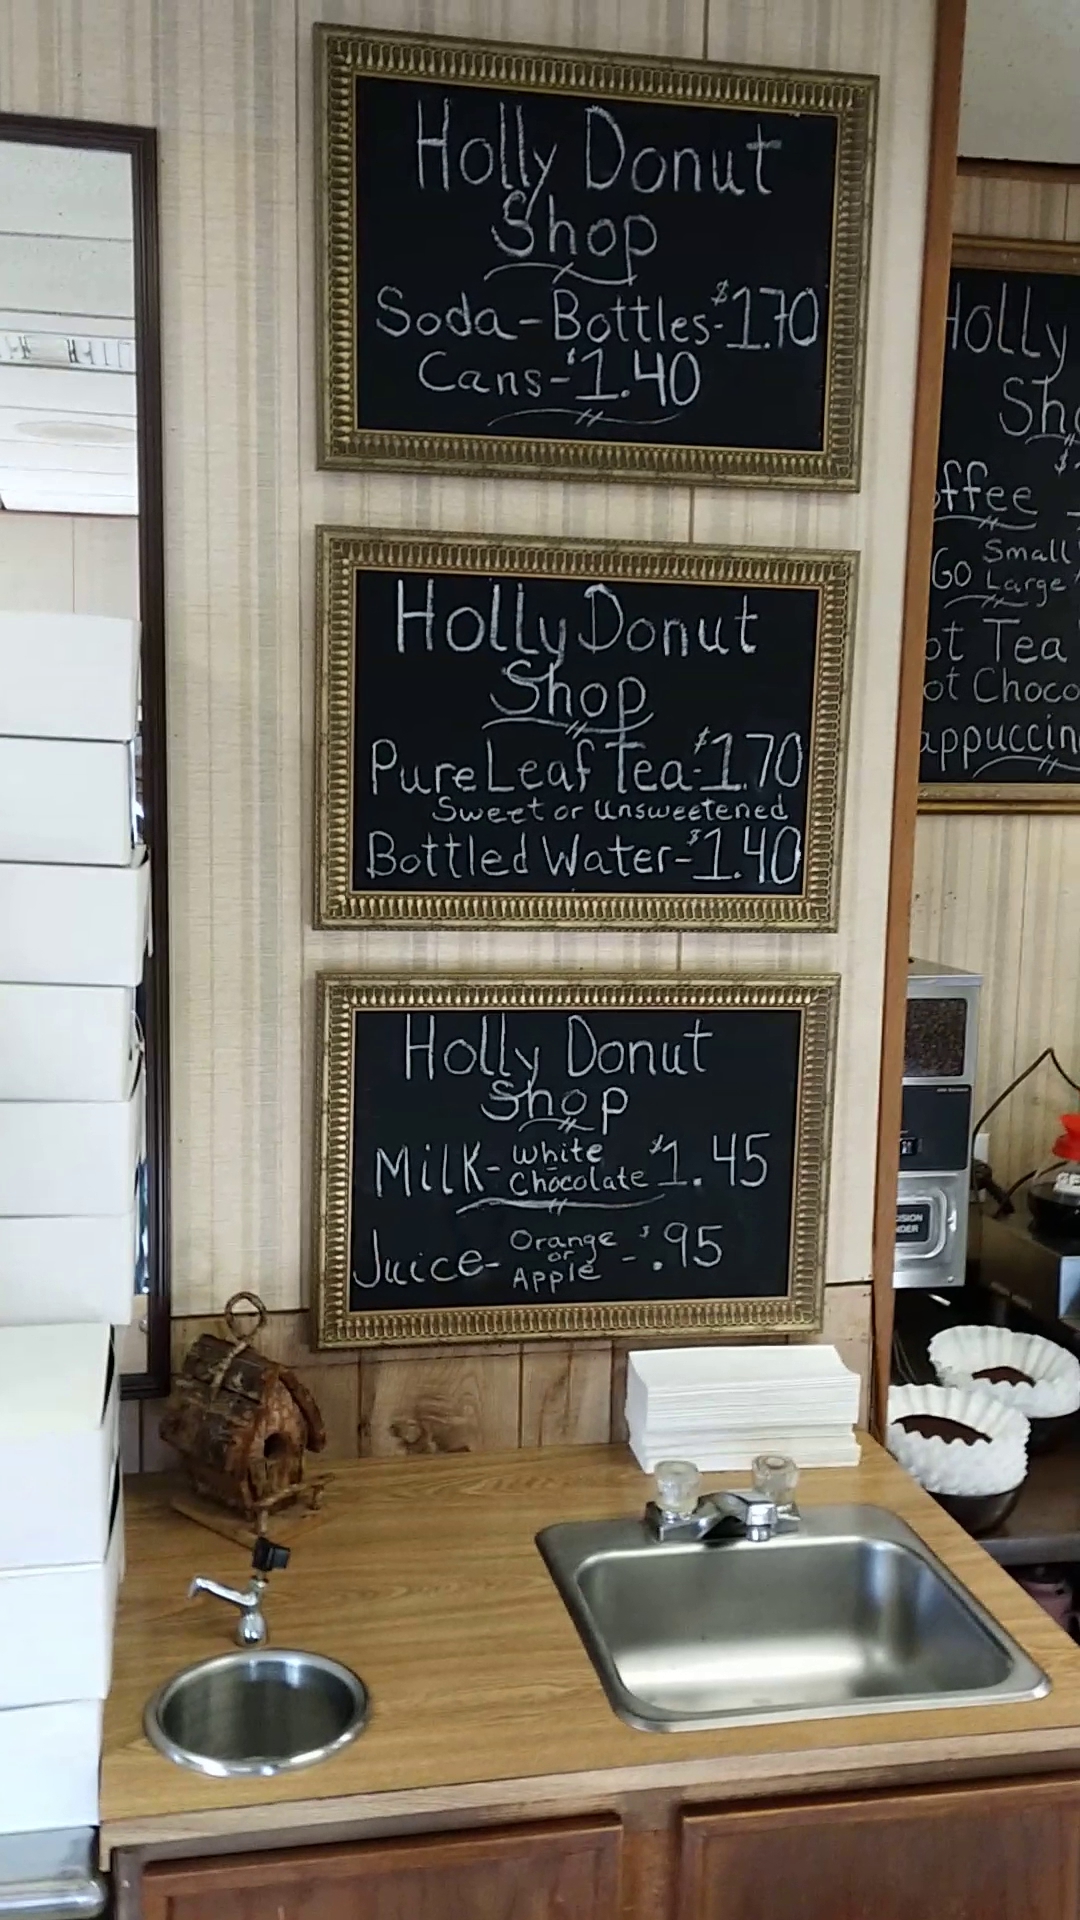 Holly Donut
Shop
Soda - Bottles - $1.70
Cans - $1.40
Holly Donut
Shop
Pure Leaf Tea - $1.70
Sweet or Unsweetened
Bottled Water - $1.40
Holly Donut
Shop
Milk - White
Chocolate $1.45
Juice - Orange
or
Apple - $.95
Holly
Small
Large
Tea